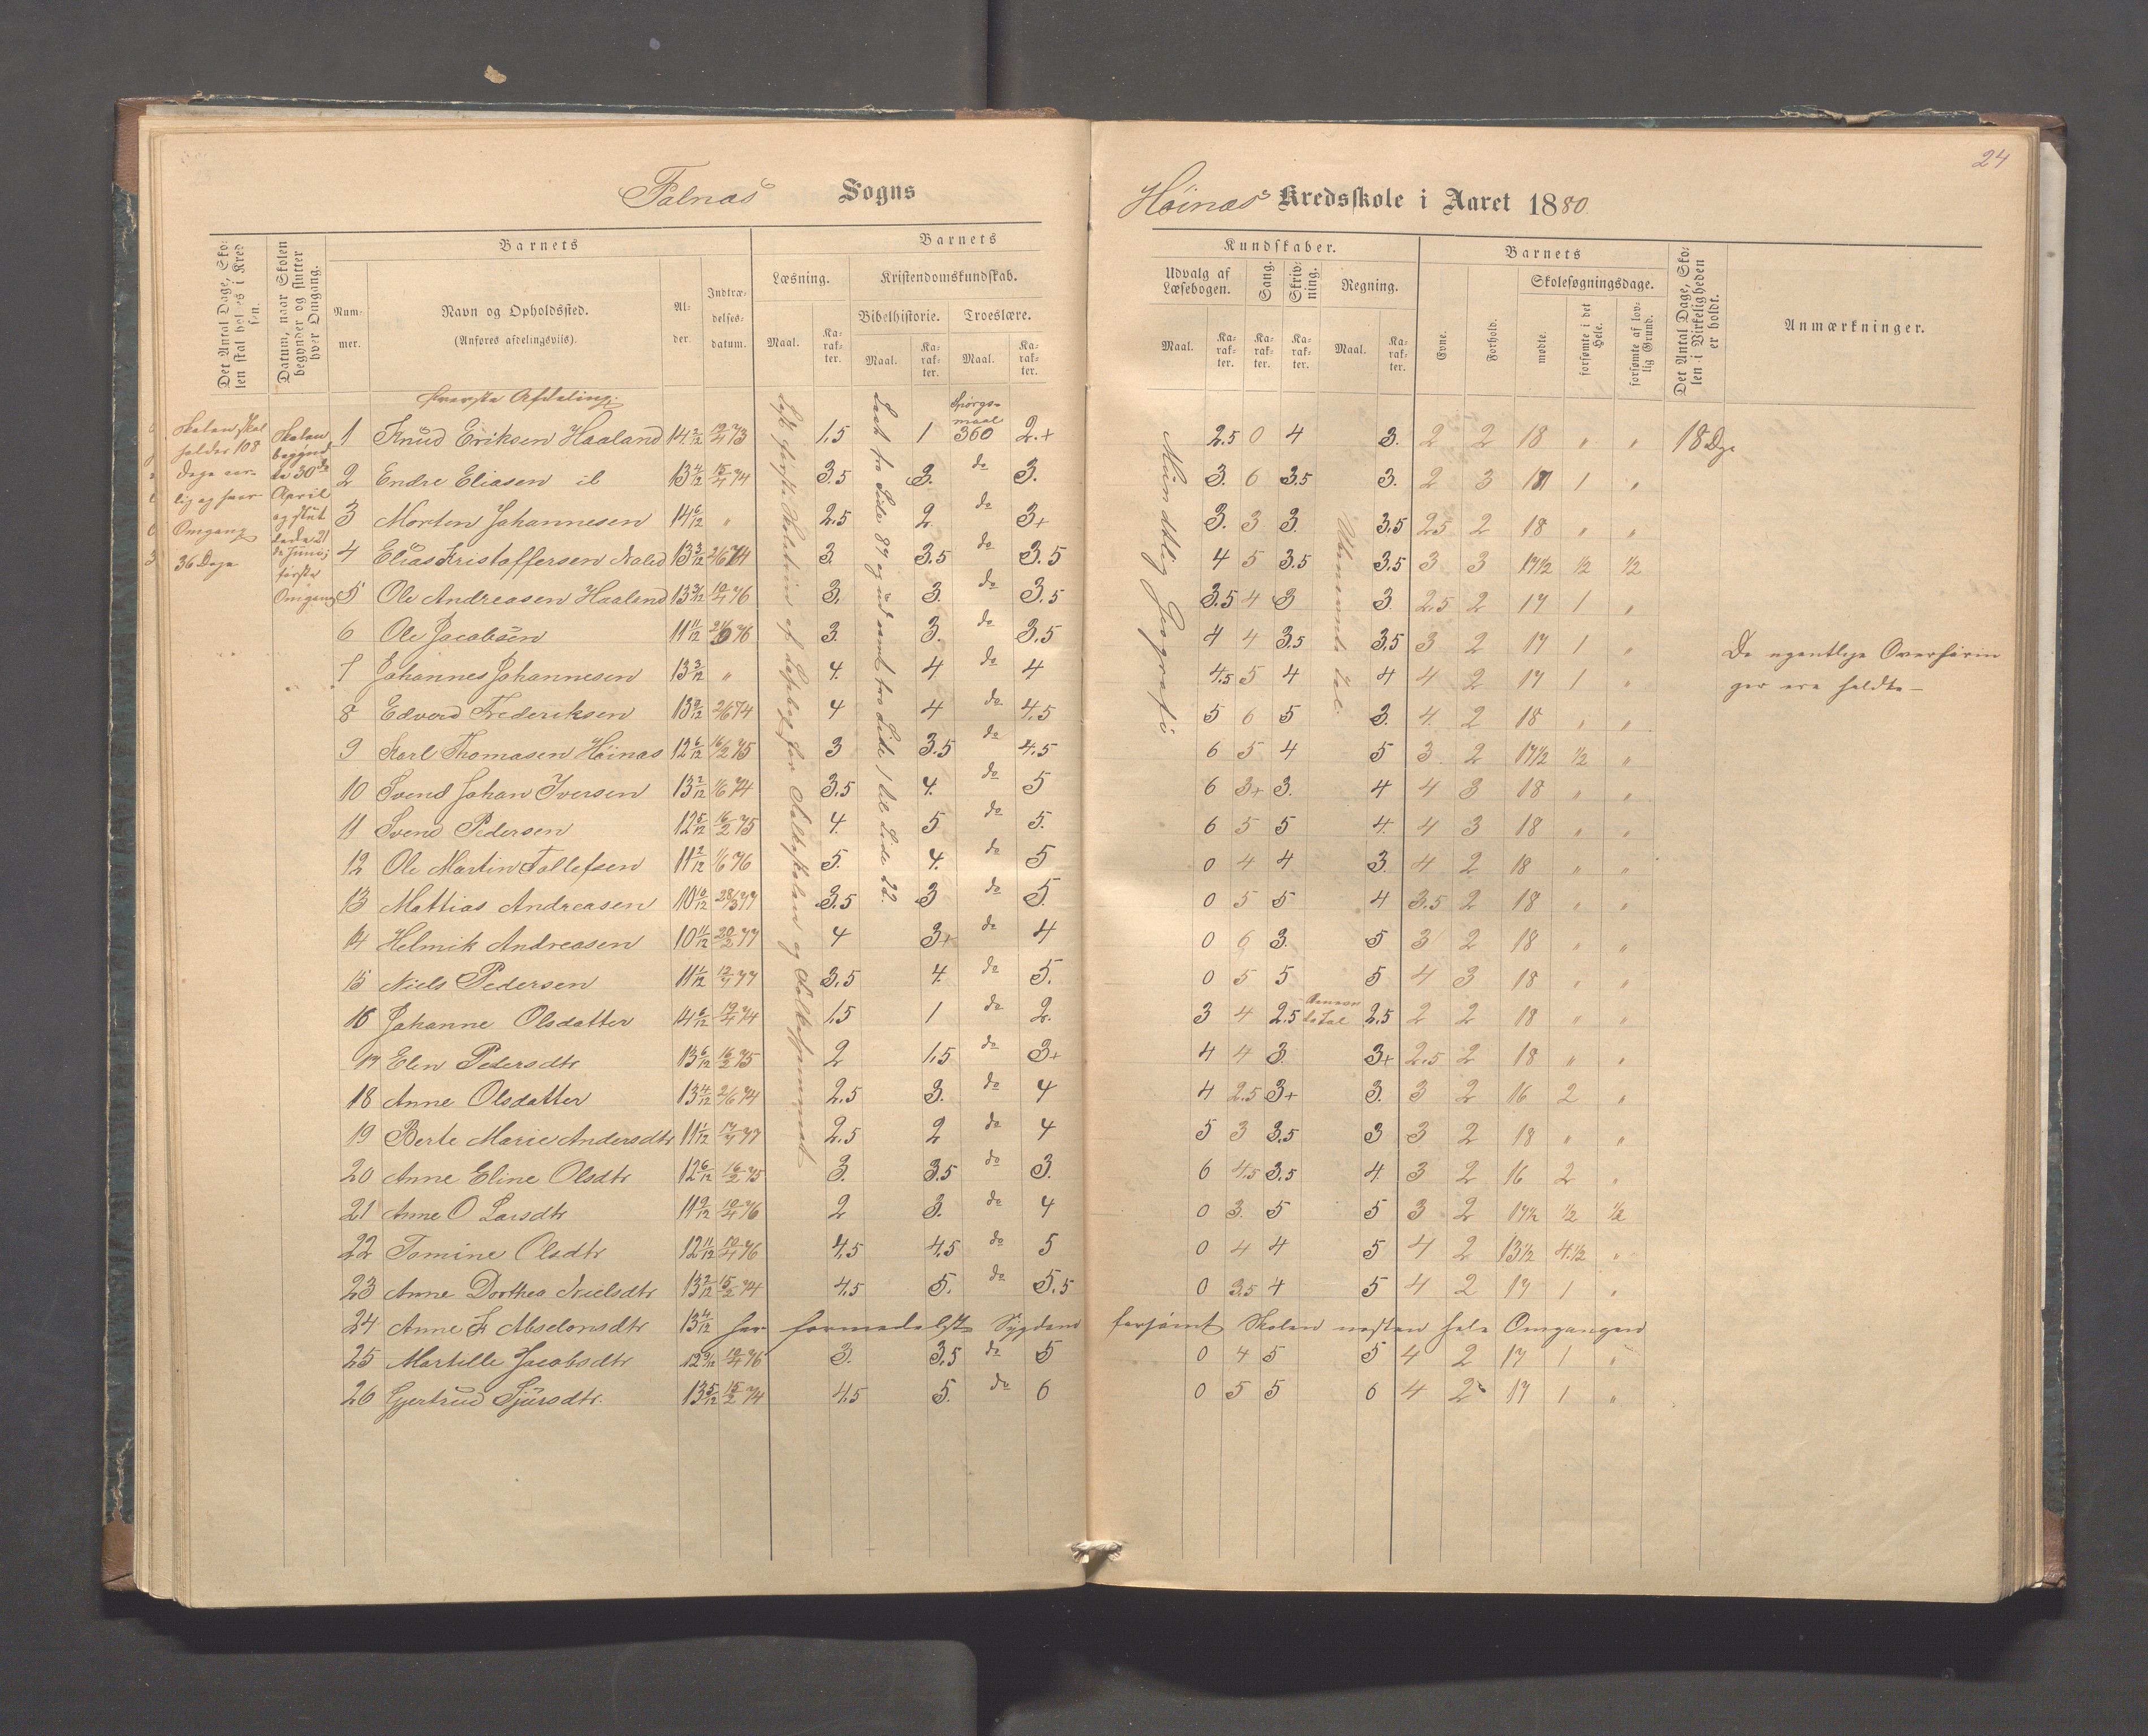 24
Falnæs Sogns
Høinæs Kredsskole i Aaret 1880
Det Antal Dage, Skolen skal holdes i Kredsen.
Datum, naar Skolen begynder og slutter hver Omgang.
Barnets
Nummer.
Navn og Opholdssted.
(Anføres afdelingsviis).
Alder.
Indtrædelsesdatum.
Barnets
Læsning.
Maal.
Karakter.
Kristendomskundskab.
Bibelhistorie.
Maal.
Karakter.
Troeslære.
Maal.
Karakter.
Kundskaber.
Udvalg af Læsebogen.
Maal.
Karakter.
Sang.
Karakter.
Skrivning.
Karakter.
Regning.
Maal.
Karakter.
Barnets
Evne.
Forhold.
Skolesøgningsdage.
mødte.
forsømte i det Hele.
forsømte af lovlig Grund.
Det Antal Dage, Skolen i Virkeligheden er holdt.
Anmærkninger.
Øverste Afdeling;
Skolen skal
holdes 108
Dage aar-
lig og hver
Omgang
36 Dage
Skolen
begynd
te 30de
April
og slut
tede 21
de Juni;
første
Omgang
Spørgs-
maal
Læst fra Side 87 og ud samt fra Side 1 til Side 22.
Mundtlig Geografi
Ubenævnte Tal.
1 Knud Eriksen Haaland 14 2/12 19/4 73 1,5 1 360 2.+ 2.5 0 4 3. 2 2 18 " " 18 Dge
2 Endre Eliasen ib 13 4/12 15/4 74 3.5 3. do 3. 3. 6 3.5 3. 2 3 17 1 "
3 Morten Johannesen 14 6/12 " 2.5 2 do 3+ 3. 3 3. 3.5 2.5 2 18 " "
4 Elias Kristoffersen Naled 13 3/12 2/6 74 3. 3.5 do 3.5 4 5 3.5 3.5 3 3 17 1/2 1/2 1/2
5 Ole Andreasen Haaland 13 3/12 19/4 76 3. 3. do 3.5 3.5 4 3 3. 2.5 2 17 1 "
6 Ole Jacobsen 11 11/12 76 3. 3. do 3.5 4 4 3.5 3.5 3 2 17 1 "
7 Johannes Johannesen 13 3/12 " 4. 4. do 4 4.5 5 4 4 4 2 17 1 "
De egentlige Overhørin
ger ere holdte –
8 Edvard Frederiksen 13 9/12 2/6 74 4 4 do 4.5 5 6 5 3. 4. 2 18 " "
9 Karl Thomasen Høinæs 12 6/12 16/2 75 3 3.5 do 4.5 6 5 4 5 3. 2 17 1/2 1/2 "
10 Svend Johan Iversen 13 2/12 1/6 74 3.5 4. do 5 6 3+ 3. 4 4 3 18 " "
11 Svend Pedersen 12 5/12 16/2 75 4. 5 do 5. 6 5 5 4. 4 3 18 " "
12 Ole Martin Tollefsen 11 2/12 1/6 76 5. 4. do 5 0 4 4 3. 4 2 18 " "
13 Mattias Andreasen 10 10/12 28/3 77 3.5 3 do 5. 0 5 5 4 3.5 2 18 " "
14 Helmik Andreasen 10 11/12 20/2 77 4 3+ do 4 0 6 3. 5 3 2 18 " "
15 Niels Pedersen 11 1/12 12/4 77 3.5 4. do 5. 0 5 5 5 4 3 18 " "
16 Johanne Olsdatter 14 6/12 19/4 74 1.5 1 do 2. 3 4 2.5 2.5 2 2 18 " "
17 Elen Pedersdtr 13 6/12 16/2 75 2 1.5 do 3+ 4 4 3. 3+ 2.5 2 18 " "
18 Anne Olsdatter 13 4/12 2/6 74 2.5 3. do 4 4 2.5 3+ 3. 3 2 16 2 "
19 Berte Marie Andersdtr 11 1/12 17/4 77 2.5 2 do 4 5 3 3.5 3 3 2 18 " "
20 Anne Eline Olsdtr 12 6/12 16/2 75 3. 3.5 do 3. 6 4.5 3.5 4. 3 2 16 2 "
21 Anne O Larsdtr 11 9/12 19/4 76 2 3. do 4 0 3. 5 5 3 2 17 1/2 1/2 1/2
22 Tomine Olsdtr 12 11/12 19/4 76 4.5 4.5 do 5 0 4 4 5 4 2 13 1/2 4 1/2 "
23 Anne Dorthea Nielsdtr 13 2/12 15/2 74 4.5 5. do 5.5 0 3.5 4 5 4 2 17 1 "
24 Anne K Absolonsdtr 13 4/12 har formedelst Sygdom forsømt Skolen næsten hele Omgangen
25 Martille Jacobsdtr 12 9/12 19/4 76 3. 3.5 do 5 0 4 5 5 4 2 17 1 "
26 Gjertrud Sjursdtr. 13 5/12 15/2 74 4.5 5. do 6 0 5 5 6 4 2 17 1 "